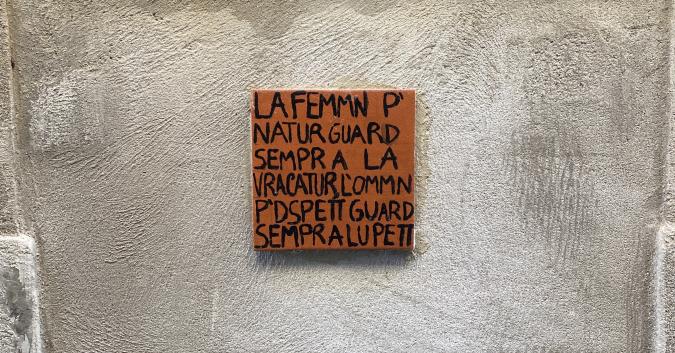 LA FEMMN P'
NATUR GUARD
SEMPR A LA
VRACATUR L'OMMN
P'DSPETT GUARD
SEMPR A LU PETT